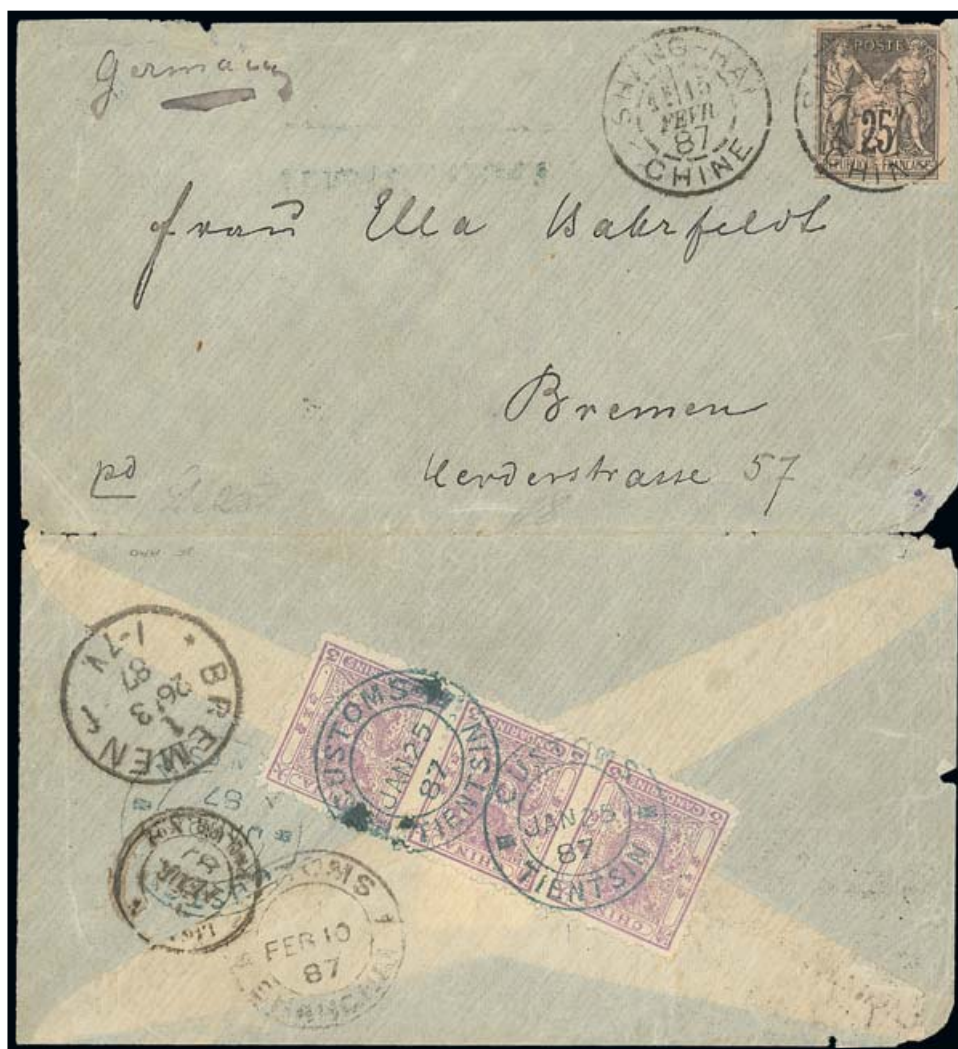 Germany
SHANG-HAI
15
FEVR
87
CHINE
POSTE
25
REPUBLIQUE FRANCAISE
CHINE
Frau Ella Bahrfeldt
Bremen
pd
Herderstrasse 57
BREMEN 1
26 3
87
1-7 V
CUSTOMS
JAN 25
87
TIENTSIN
CUSTOMS
JAN 25
87
TIENTSIN
CHINA
CANDARINS
87
CUSTOMS
FEB 10
87
SHANGHAI